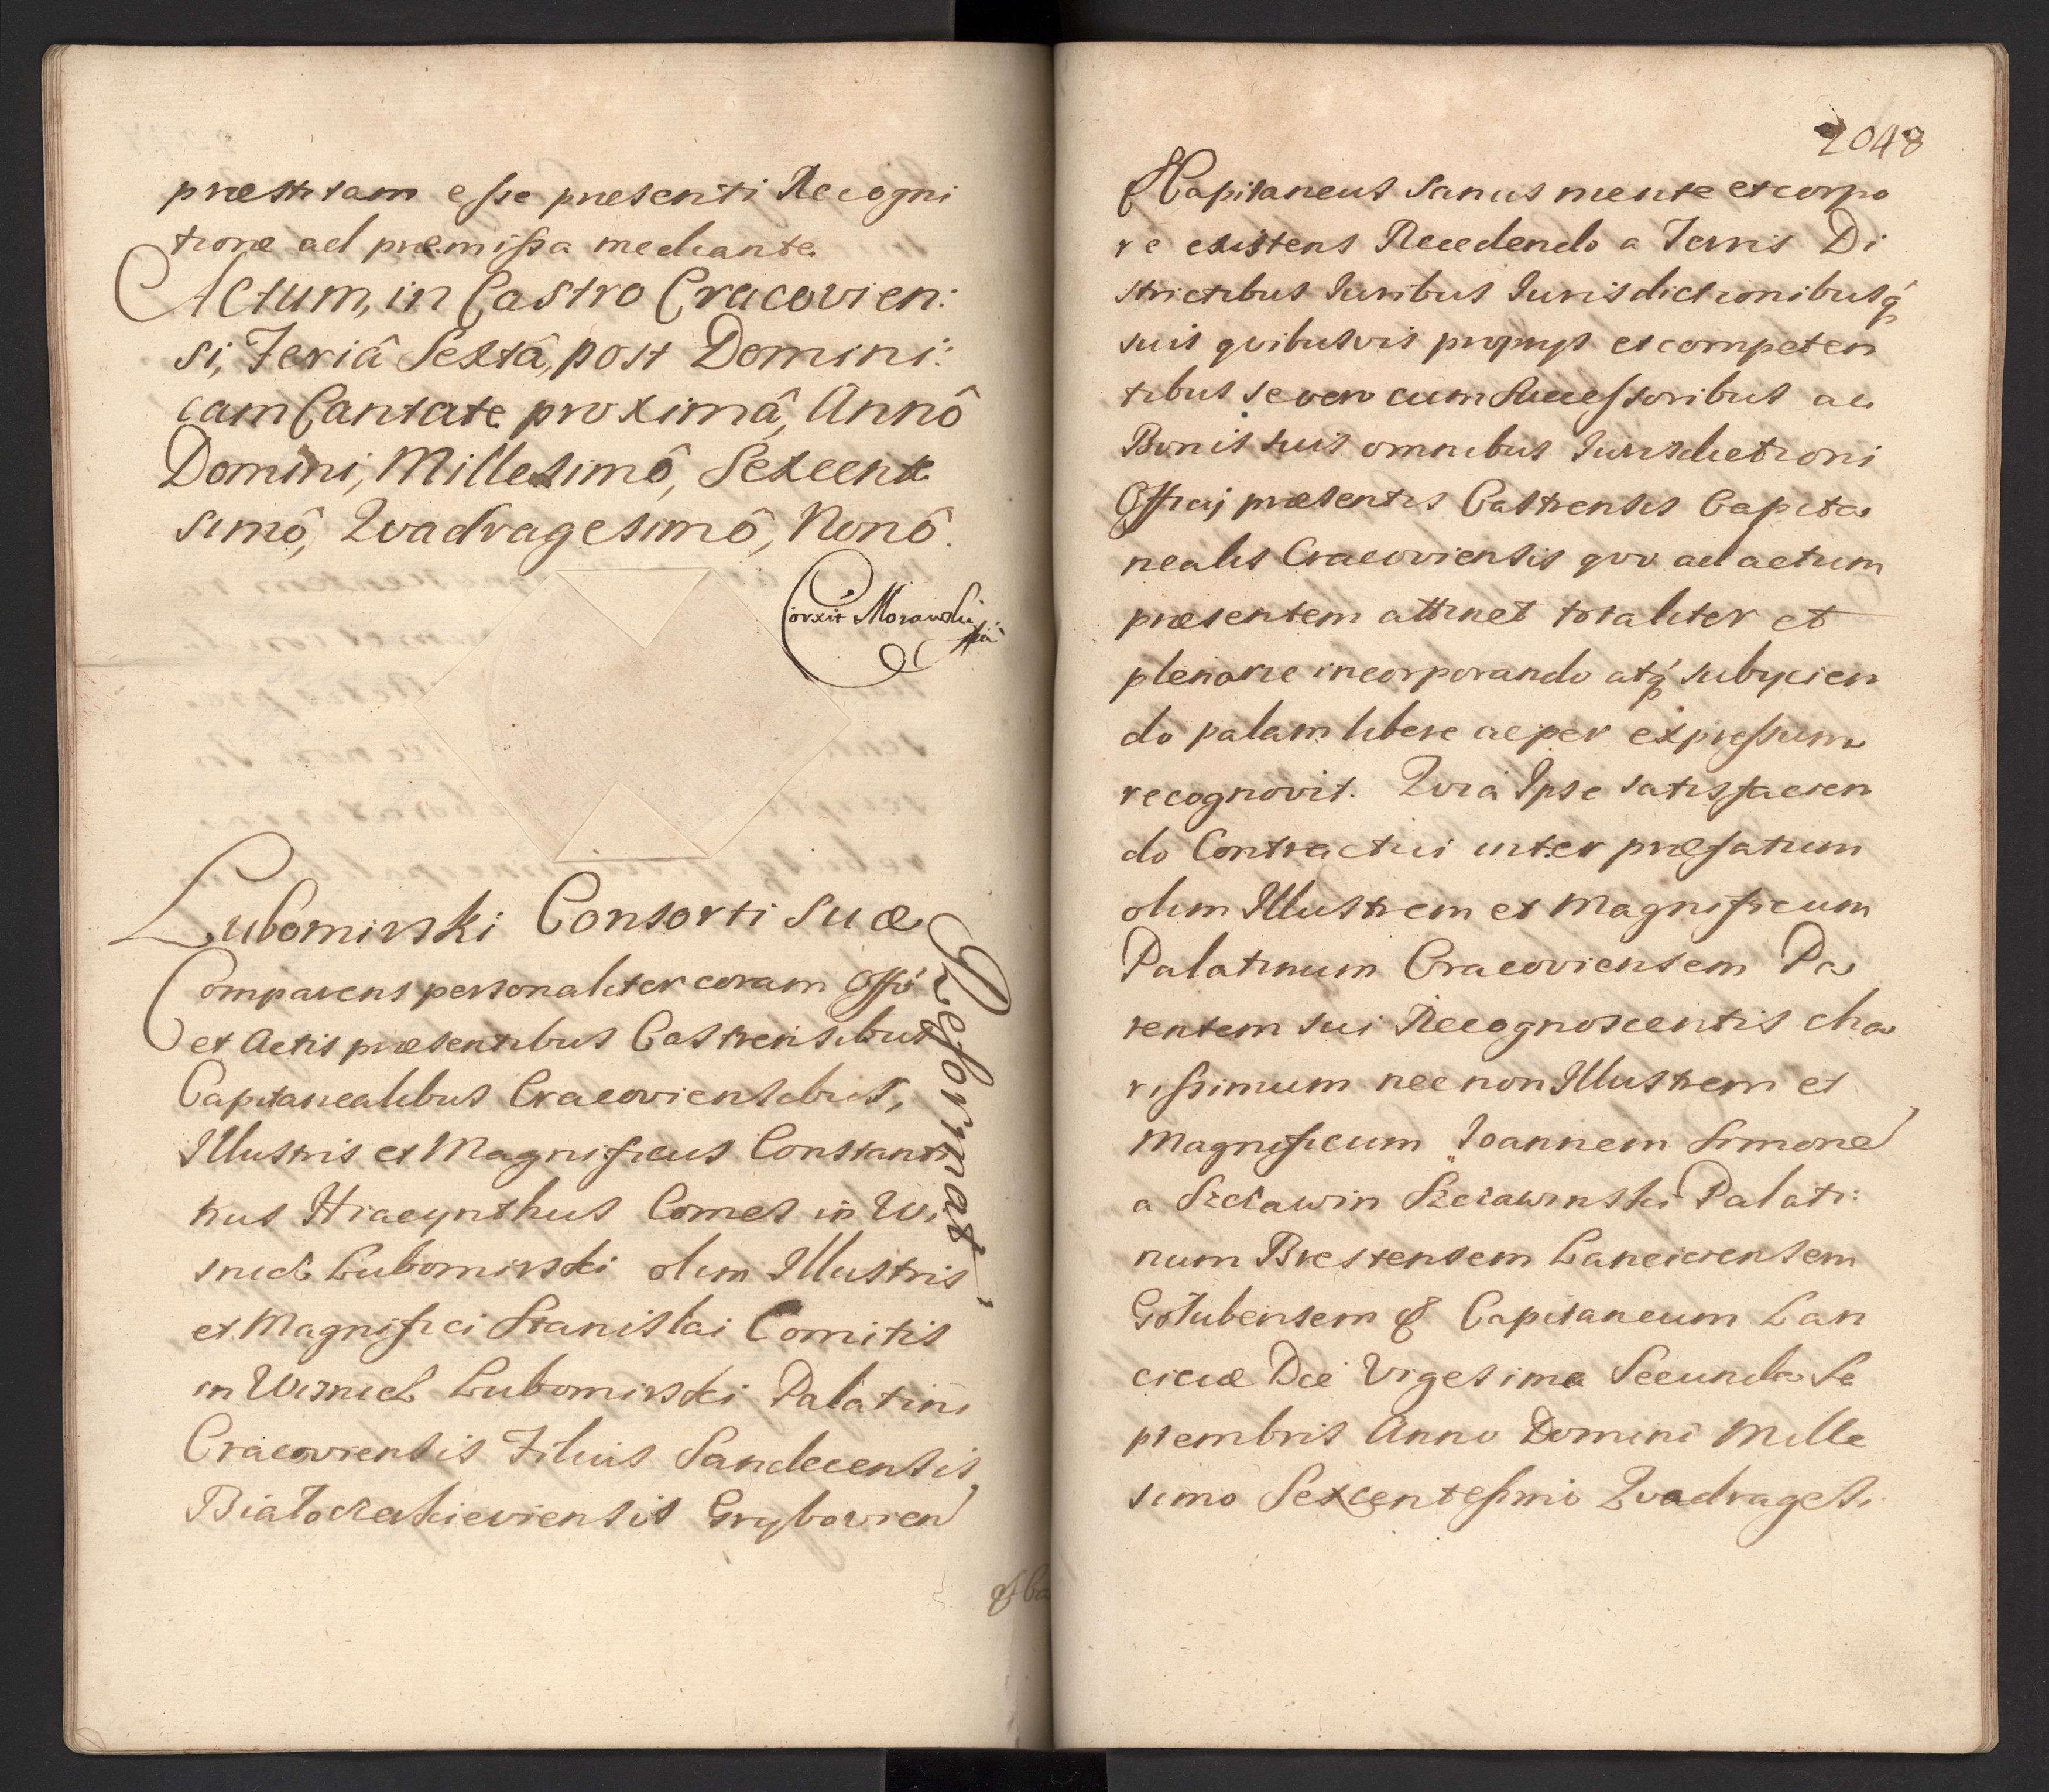 præstitam esse præsenti Recogni
tione ad præmissa mediante
Actum, in Castro Cracovien:
si, Feriâ Sextâ, post Domini:
cam Cantate proximâ, Annô
Domini, Millesimô, Sexcente
simô, Qvadragesimô, Nonô.
Corxit Morawski
Lubomirski Consorti suæ
Reformat
Comparens personaliter coram Offö
et Actis præsentibus Castrensibus
Capitanealibus Cracoviensibus,
Illustris et Magnificus Constanti
nus Hiacynthus Comes in Wi
snicz Lubomirski olim Illustris
et Magnifici Stanislai Comitis
in Wisnicz Lubomirski Palatini
Cracoviensis Filius Sandecensis,
Białocerkieviensis Grybovien
& Ca
2048
& Capitaneus sanus mente et corpo
re existens Recedendo a Terris Di
strictibus Iuribus Iurisdictionibusq́
suis qvibusvis proprijs et competen
tibus se vero cum Successoribus ac
Bonis suis omnibus Iurisdictioni
Officij præsentis Castrensis Capita
nealis Cracoviensis qvo ad actum
præsentem attinet totaliter et
plenarie incorporando atq́ subijcien
do palam libere ac per expressum
recognovit. Qvia Ipse satisfacien
do Contractui inter præfatum
olim Illustrem et Magnificum
Palatinum Cracoviensem Pa
rentem sui Recognoscentis cha
rissimum nec non Illustrem et
Magnificum Ioannem Simone
a Szczawin Szczawinski Palati:
num Brestensem Lanciciensem
Gołubensem & Capitaneum Lan
ciciæ Die Vigesima Secunda Se
ptembris Anno Domini Mille
simo Sexcentesimo Qvadragesi